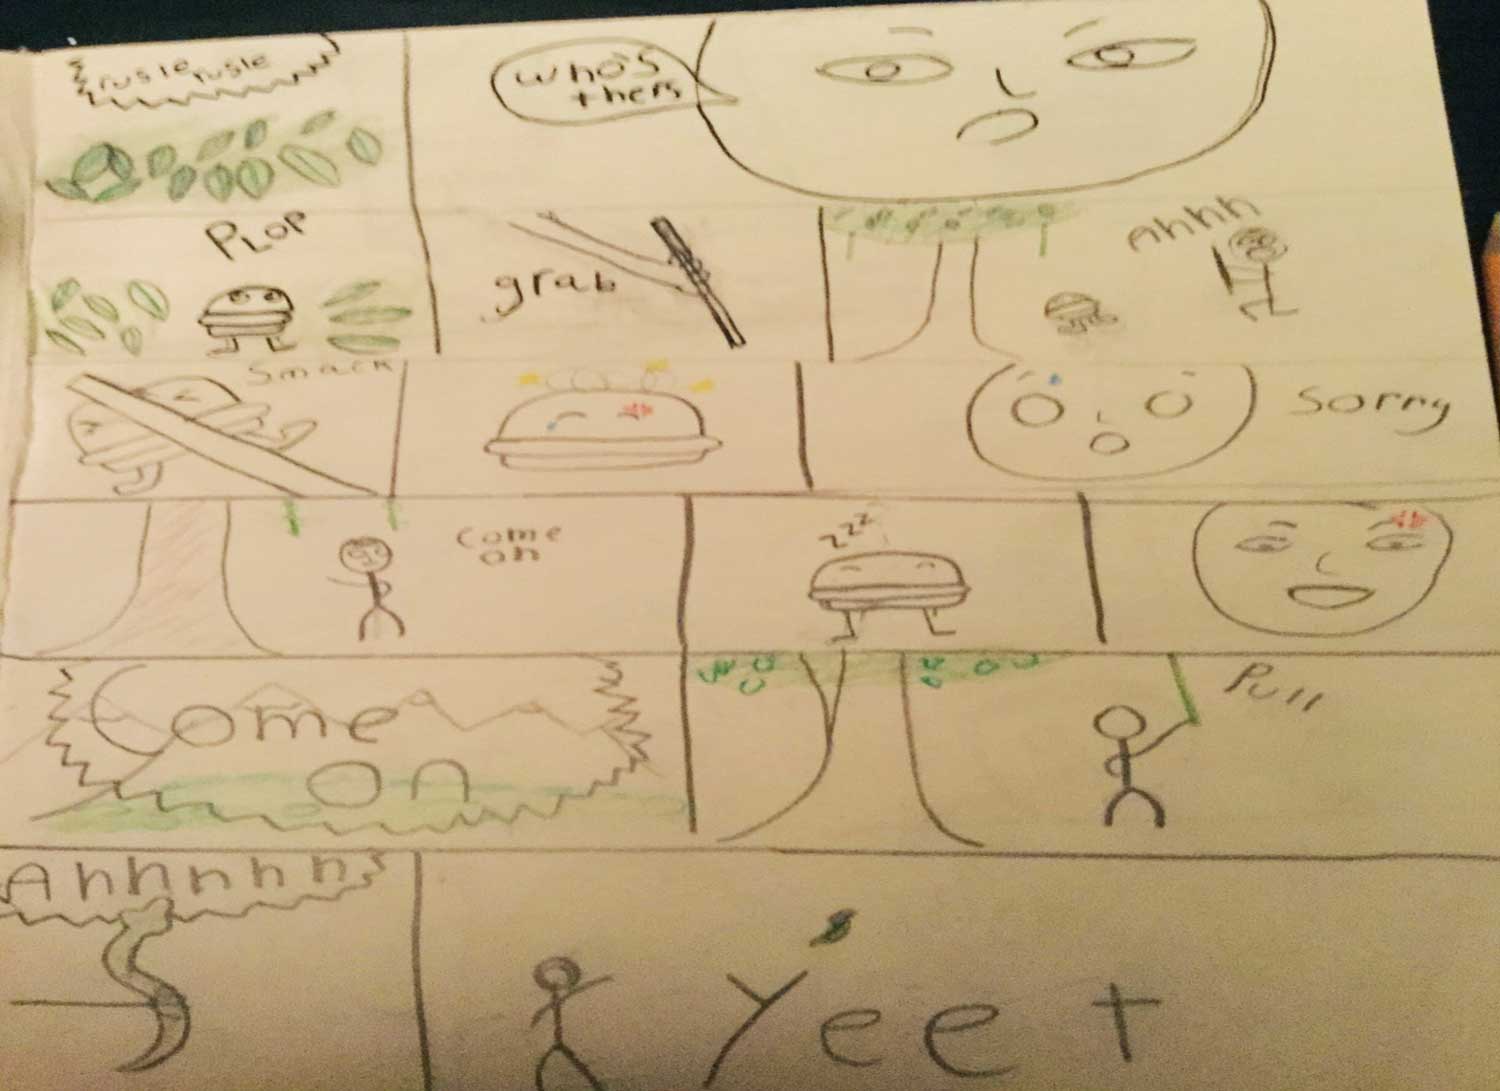 rusle rusle
who's
thers
PLOP
grab
Ahhh
Smack
Sorry
Come
on
zzz
Come
on
Pull
Ahhhhhh
Yeet